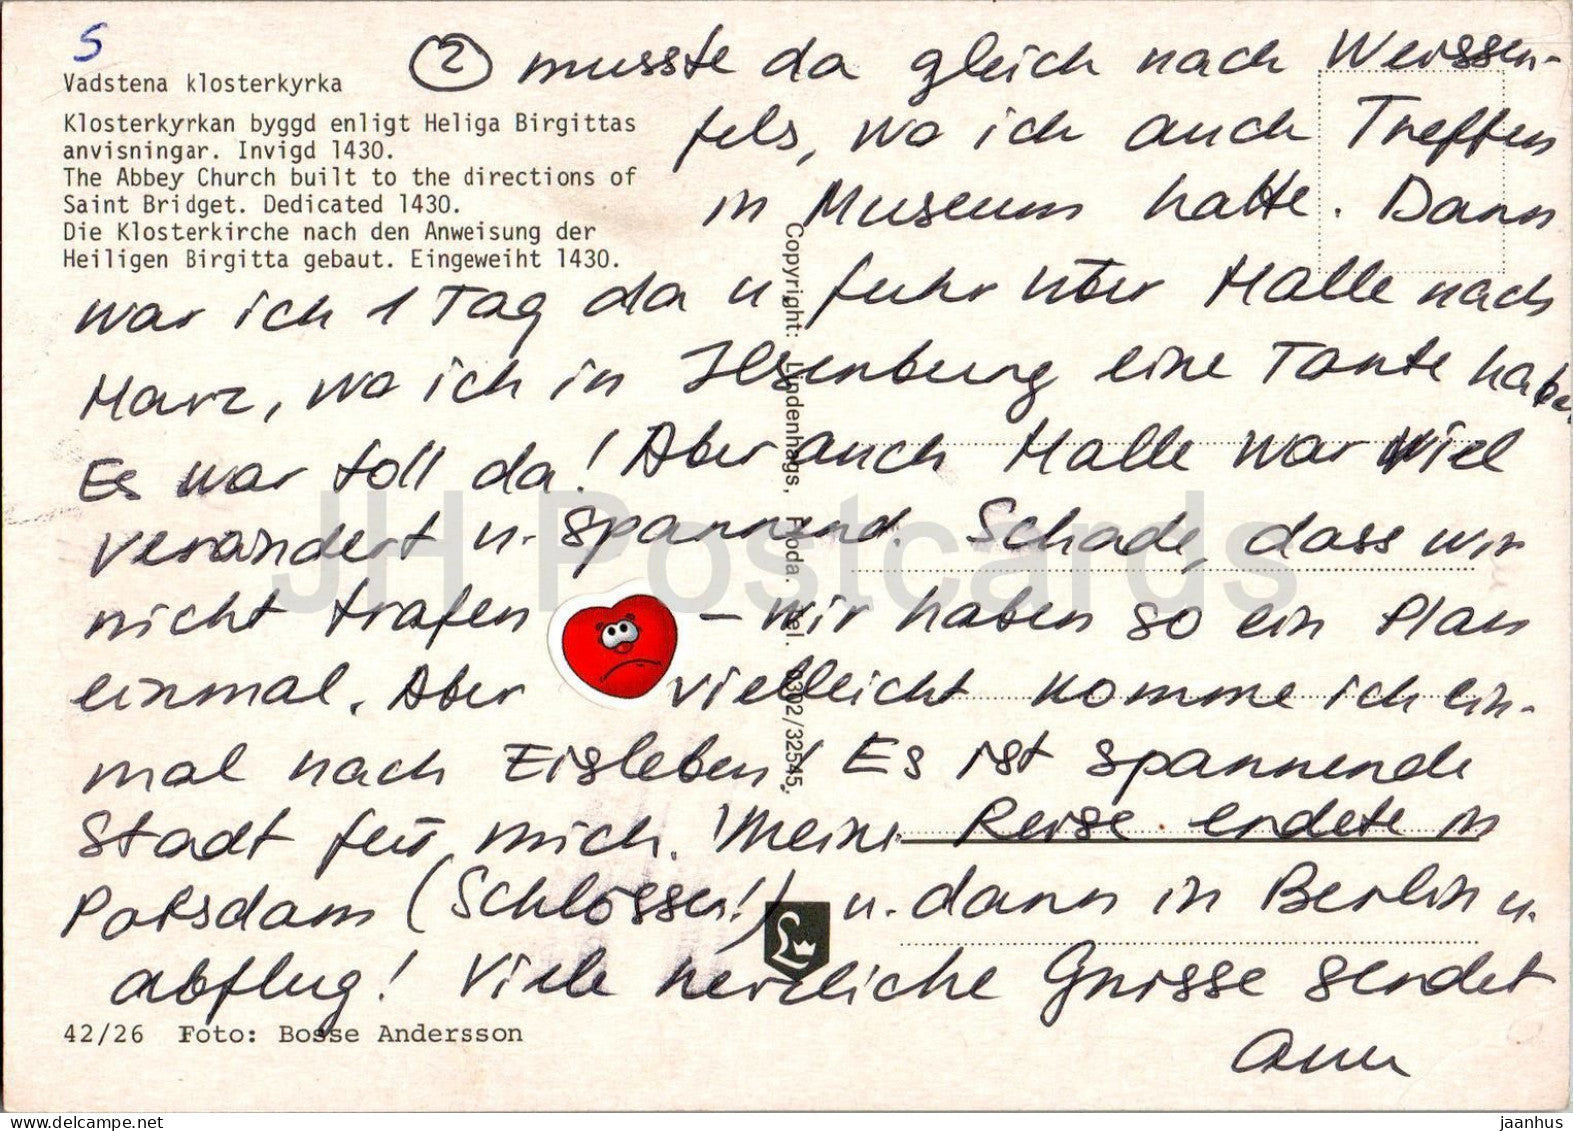 S
Vadstena klosterkyrka
Klosterkyrkan byggd enligt Heliga Birgittas
anvisningar. Invigd 1430.
The Abbey Church built to the directions of
Saint Bridget. Dedicated 1430.
Die Klosterkirche nach den Anweisung der
Heiligen Birgitta gebaut. Eingeweiht 1430.
② musste da gleich nach Weissen-
fels, wo ich auch Treffen
in Museum hatte. Dann
war ich 1 Tag da u. fuhr über Halle nach
Harz, wo ich in Ilsenburg eine Tante habe.
Es war toll da! Aber auch Halle war viel
verändert u. spannend. Schade, dass wir
nicht trafen – wir haben so ein Plan
einmal. Aber vielleicht komme ich ein-
mal nach Eisleben! Es ist spannende
Stadt für mich. Meine Reise endete in
Potsdam (Schlösser!) u. dann in Berlin u.
abflug! Viele herzliche Grüsse sendet
Ann
Copyright: Lindenhags, Froda. Tel. 0302/32545.
42/26 Foto: Bosse Andersson
JH Postcards
www.delcampe.net
jaanhus